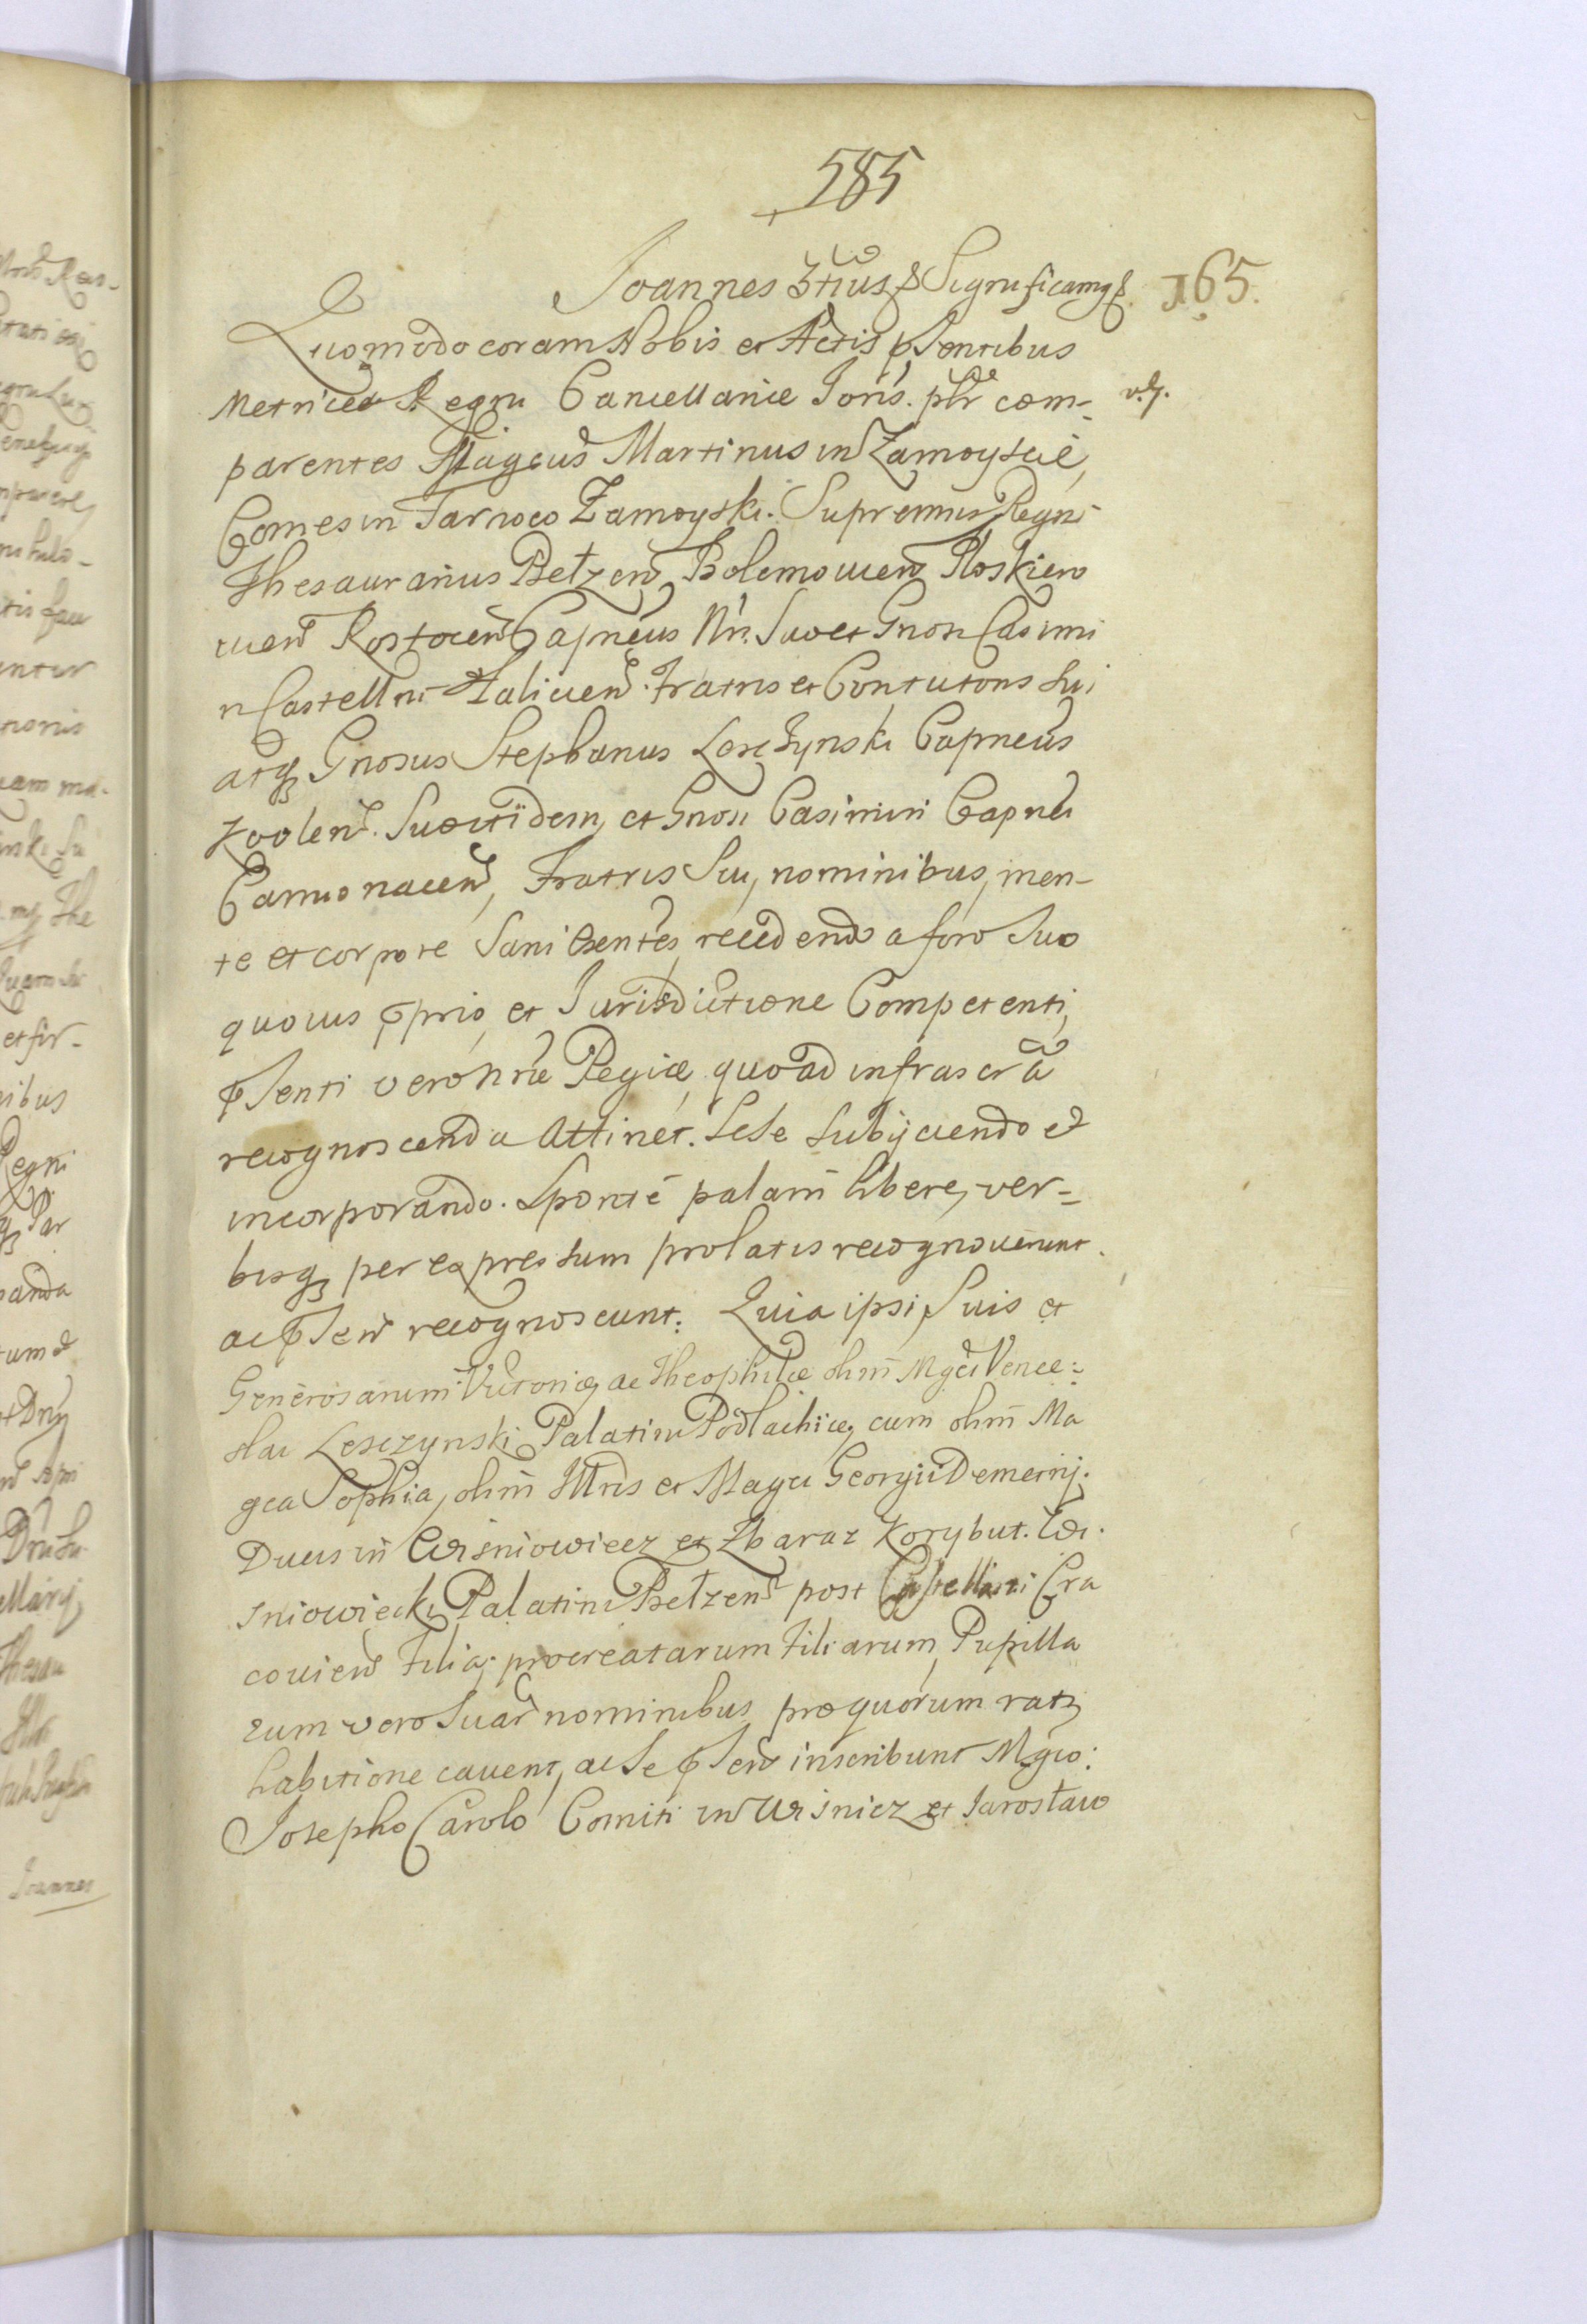 585
Joannes 3tius Significamus 165.
Quomodo coram Nobis et Actis pñsentibus
Metricea Regni Cancellariæ Joris. plr com- v.g.
parentes Magcus Martinus in Zamoyscie,
Comes in Tarnoco Zamoyski. Supremus Regni
Thesaurarius Bełzeñ, Bolemouieñ Płoskiero
uieñ Rostoceñ Capneus Nñ. Suo et Gnosi Casimi
ri Castellni Haliciеñ. Fratris et Contutoris Sui
atq3 Gnosus Stephanus Lesczynski Capneus
Zooleñ. Suo itidem, et Gnosi Casimiri Capnei
Camionaceñ, Fratris Sui, nominibus, men-
te et corpore Sani existentes, recedendo a foro Suo
quouis pprio, et Jurisdictione Competenti,
pñsenti vero Nræ Regiæ, quoad infrascra
recognoscenda Attinet. Sese Subijciendo et
incorporando. Sponte palam libere, ver-
bisq3 per expressum prolatis recognouerunt
ac pñseñ recognoscunt. Quia ipsi Suis et
Generosarum Victoriæ, ac Theophilæ olim Mgci Vence-
slai Lesczynski Palatini Podlachiæ, cum olim Ma
gca Sophia, olim Illtris et Magci Georgii Demetrij.
Ducis in Wisniowiecz et Zbaraz Korybut. Wi.
sniowiecki Palatini Bełzeñ post Castellani Cra
couieñ Filia; procreatarum Filiarum, Pupilla
rum vero Suar nominibus, pro quorum rati
habitione cauent, ac Se pñseñ inscribunt Mgco:
Josepho Carolo Comiti in Wisnicz et Jarosław